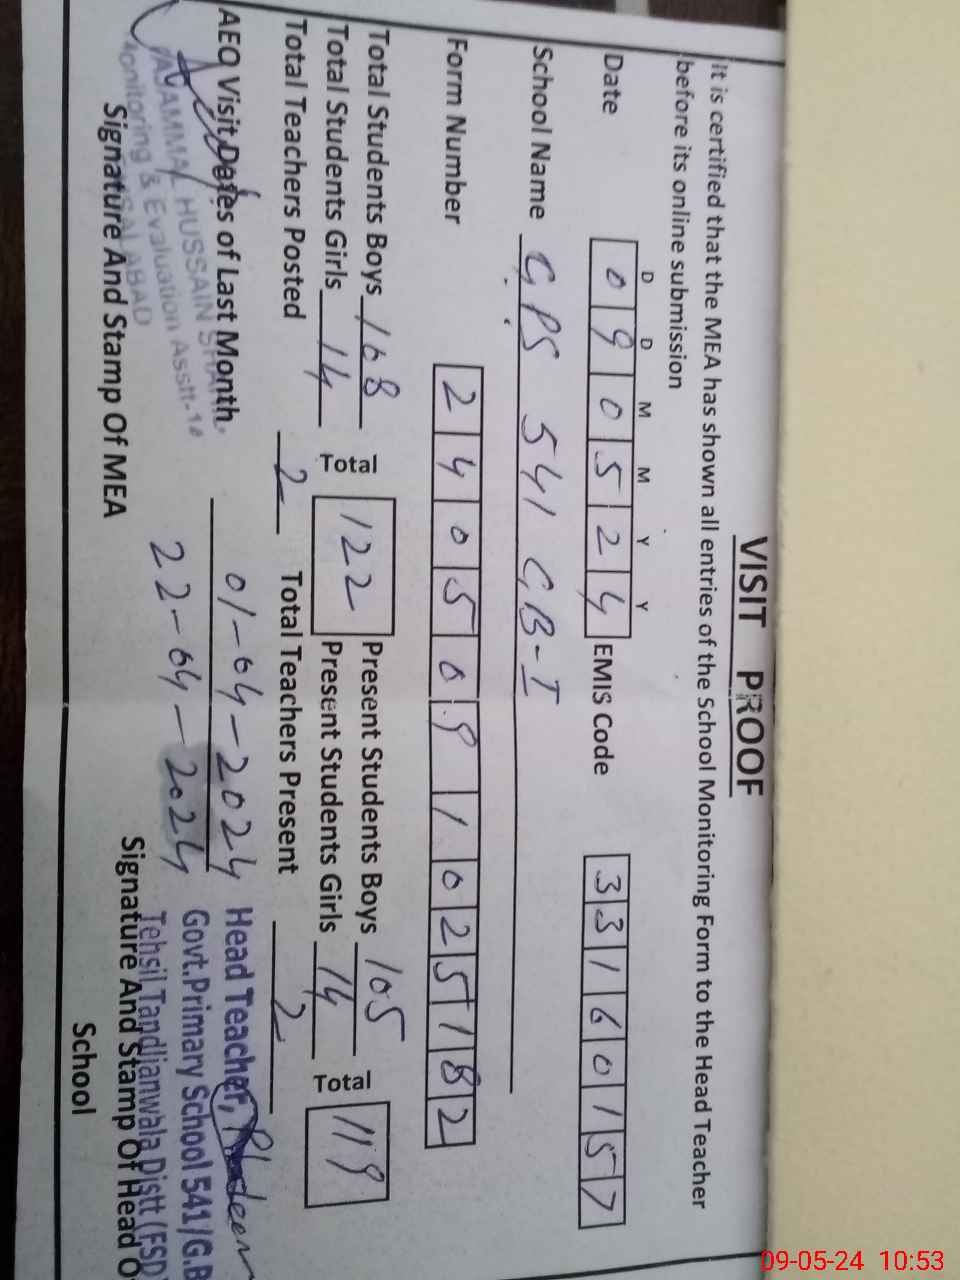 VISIT PROOF
It is certified that the MEA has shown all entries of the School Monitoring Form to the Head Teacher
before its online submission
D D M M Y Y
Date 090524 EMIS Code 33160157
School Name GPS 541 GB-I
Form Number 2405091025182
Total Students Boys 108 Total 122 Present Students Boys 105 Total 119
Total Students Girls 14 Present Students Girls 14
Total Teachers Posted 2 Total Teachers Present 2
AEO Visit Dates of Last Month 01-04-2024
22-04-2024
HUSSAIN
Monitoring & Evaluation Asstt-10
Signature And Stamp Of MEA
Head Teacher,
Govt.Primary School 541/G.B
Tehsil Tandlianwala Distt (FSD
Signature And Stamp Of Head O
School
09-05-24 10:53